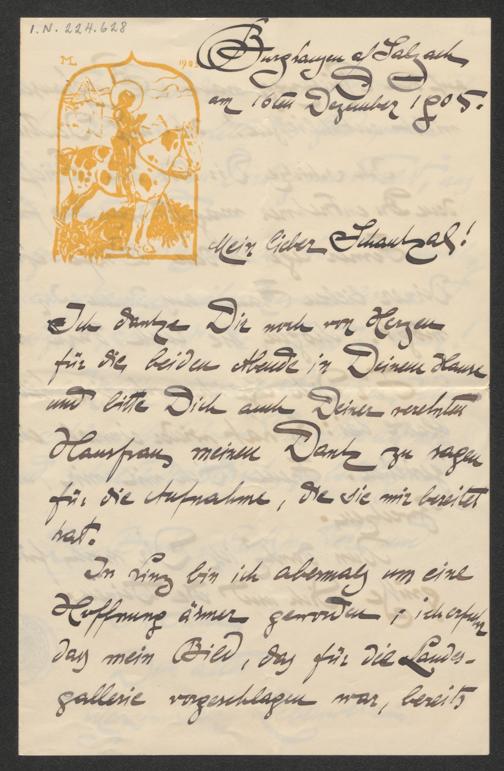 I.N. 224.628
ML 190
Burghausen a/Salzach
am 16ten Dezember 1905.
Mein lieber Schaukal!
Ich dantze Dir noch von Herzen
für die beiden Abende in Deinem Hause
und bitte Dich auch Deiner verehrten
Hausfrau meinen Dantz zu sagen
für die Aufnahme, die sie mir bereitet
hat.
In Linz bin ich abermals um eine
Hoffnung ärmer geworden; ich erfuhr
das mein Bild, das für die Landes-
gallerie vorgeschlagen war, bereits